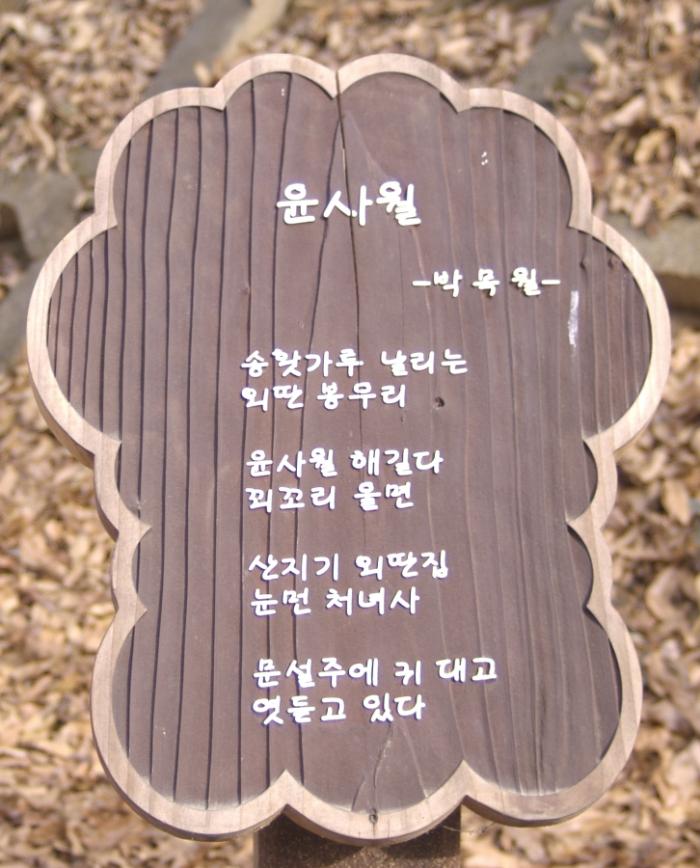 윤사월
-박목월-
송홧가루 날리는
외딴 봉우리
윤사월 해길다
꾀꼬리 울면
산지기 외딴집
눈먼 처녀사
문설주에 귀 대고
엿듣고 있다